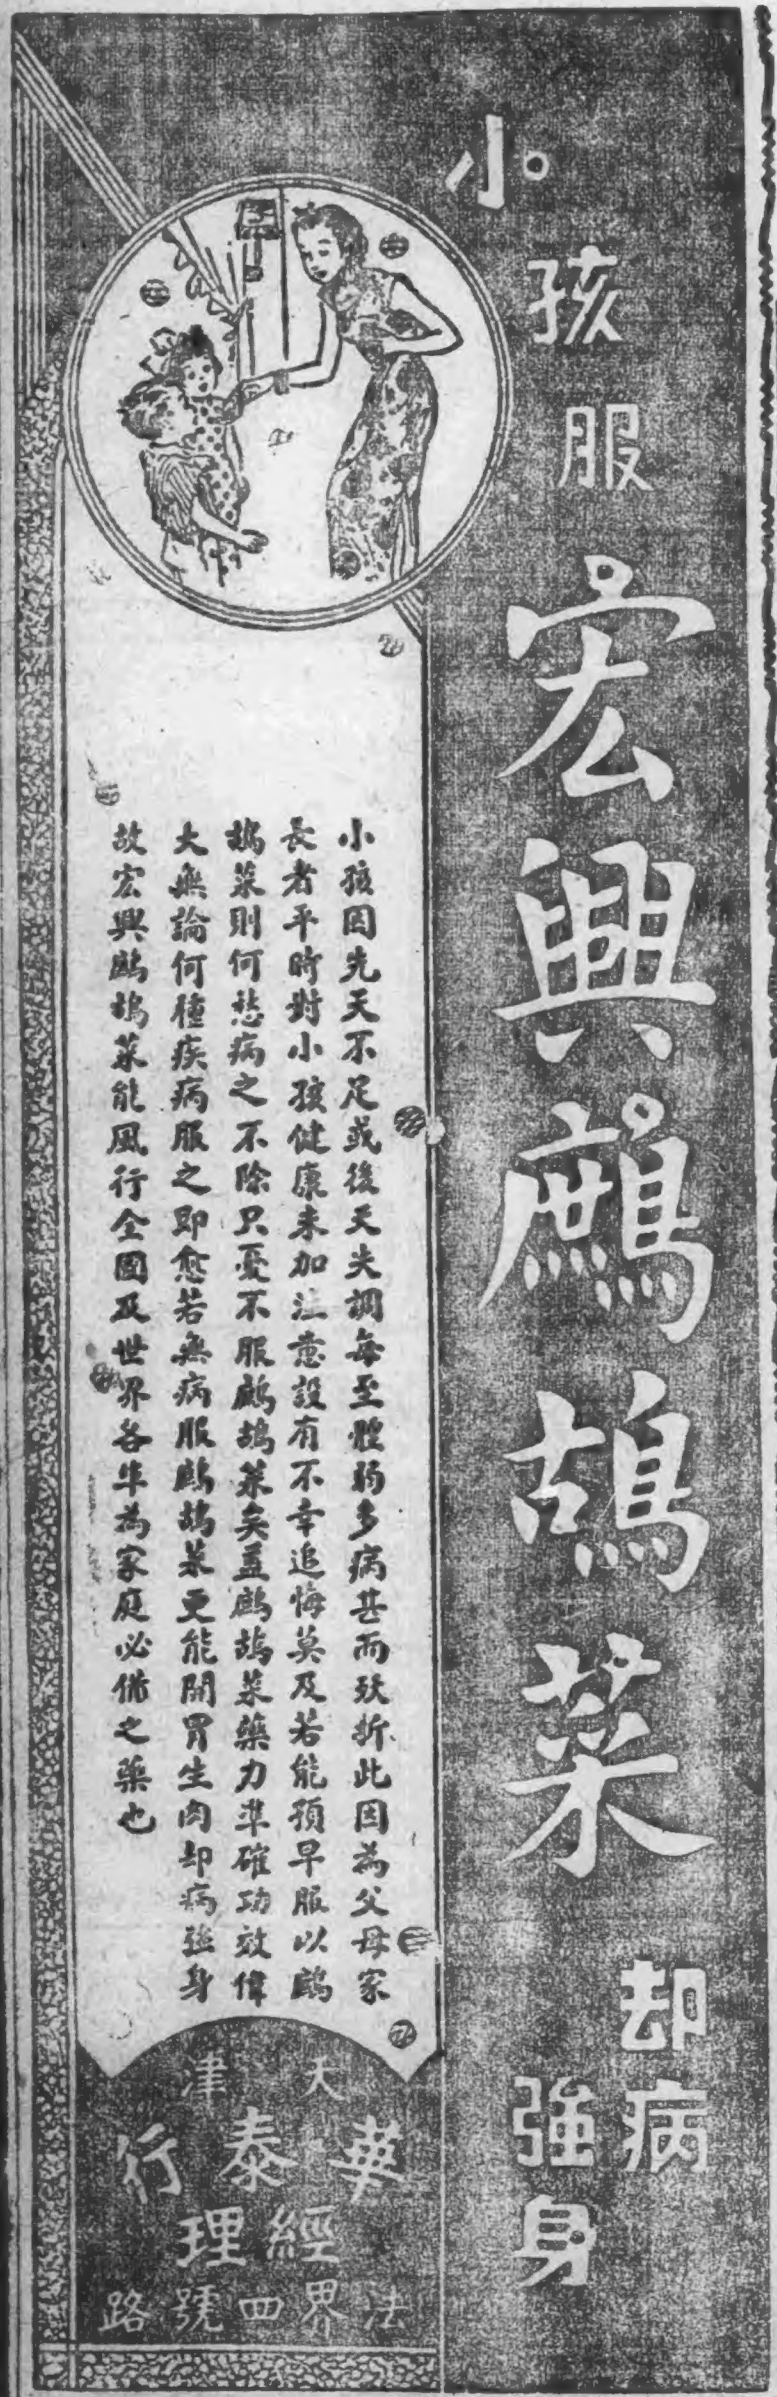 小孩服
宏興鷓鴣菜
却病
強身
小孩因先天不足或後天失調每至體弱多病甚而殀折此因為父母家
長者平時對小孩健康未加注意設有不幸追悔莫及若能預早服以鷓
鴣菜則何愁病之不除只憂不服鷓鴣菜矣蓋鷓鴣菜藥力準確功效偉
大無論何種疾病服之即愈若無病服鷓鴣菜更能開胃生肉却病強身
故宏興鷓鴣菜能風行全國及世界各埠為家庭必備之藥也
天津
華泰行
經理
法界四號路